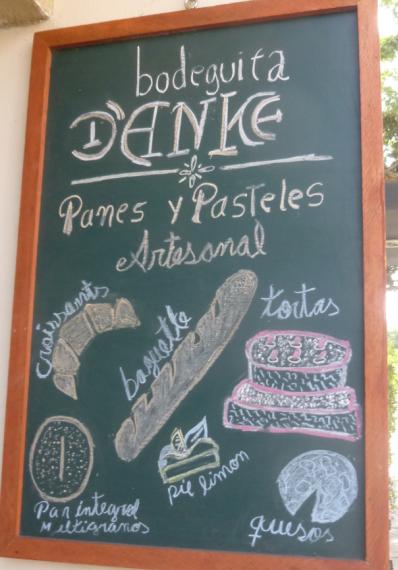 bodeguita
D'ANKE
Panes y Pasteles
Artesanal
croissants
baguette
tortas
pie limon
Pan integral
Multigranos
quesos